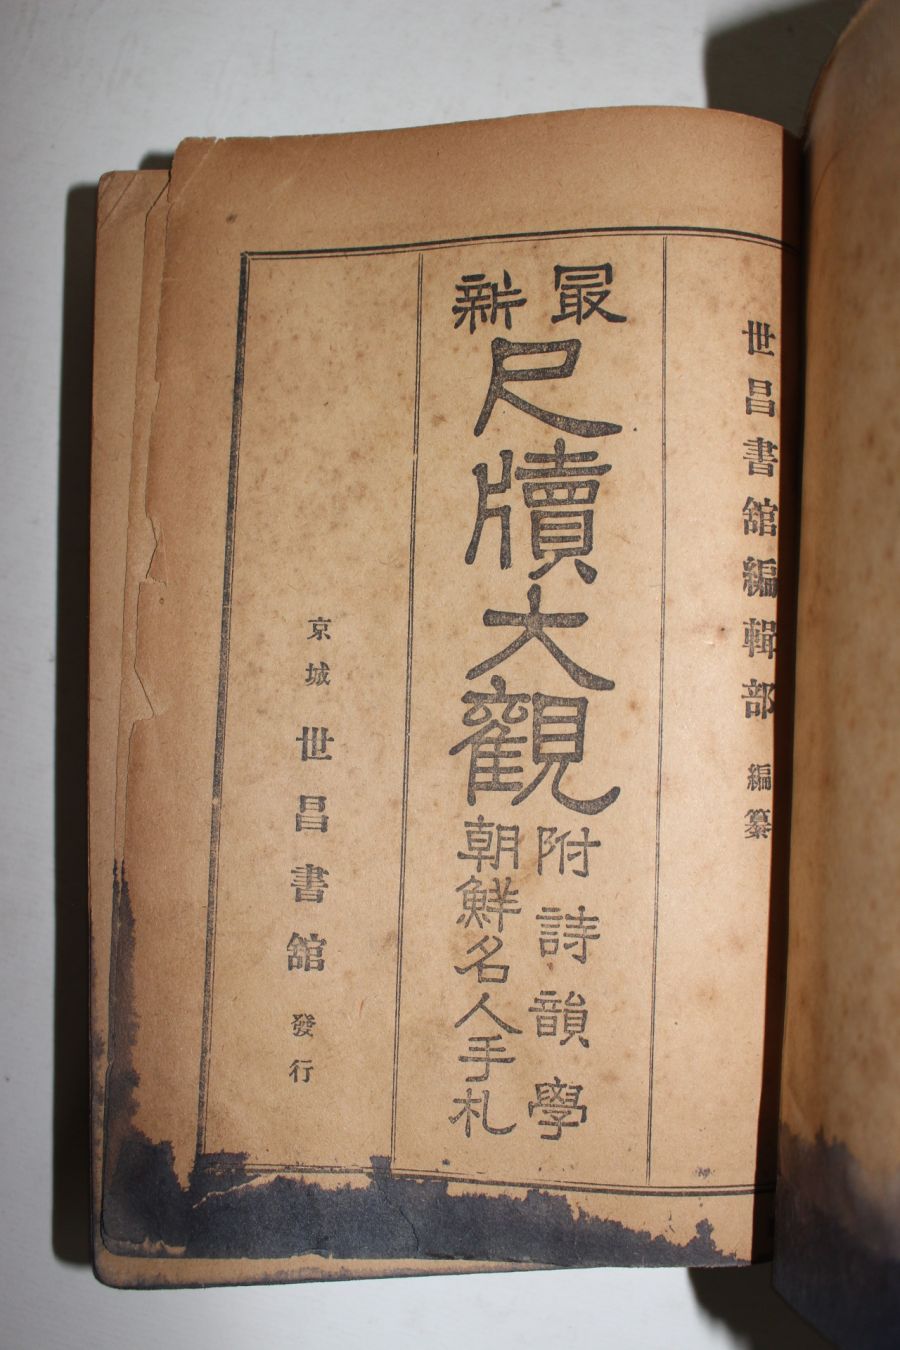 世昌書舘編輯部 編纂
最新
尺牘大觀
附詩韻學
朝鮮名人手札
京城 世昌書舘 發行